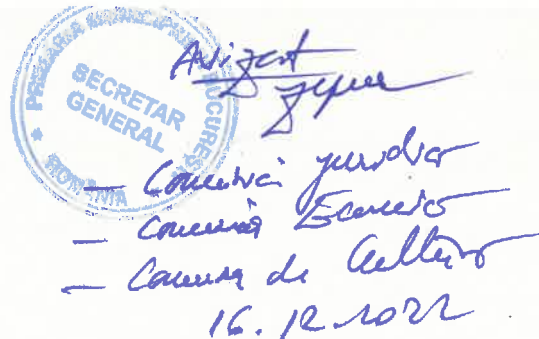 PRIMĂRIA MUNICIPIULUI BUCUREȘTI
SECRETAR
GENERAL
ROMÂNIA
Avizat
— Comisia juridică
— Comisia Economică
— Comisia de Cultură
16.12.2022